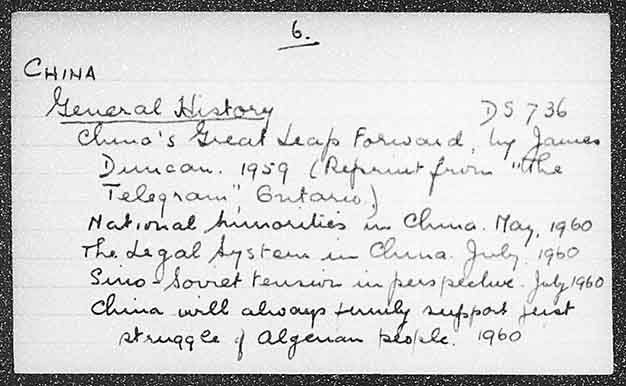 6.
CHINA
General History DS 736
China's Great Leap Forward, by James
Duncan. 1959 (Reprint from "The
Telegram", Ontario.)
National Minorities in China. May, 1960
The Legal System in China. July, 1960
Sino-Soviet tension in perspective. July 1960
China will always firmly support just
struggle of Algerian people. 1960